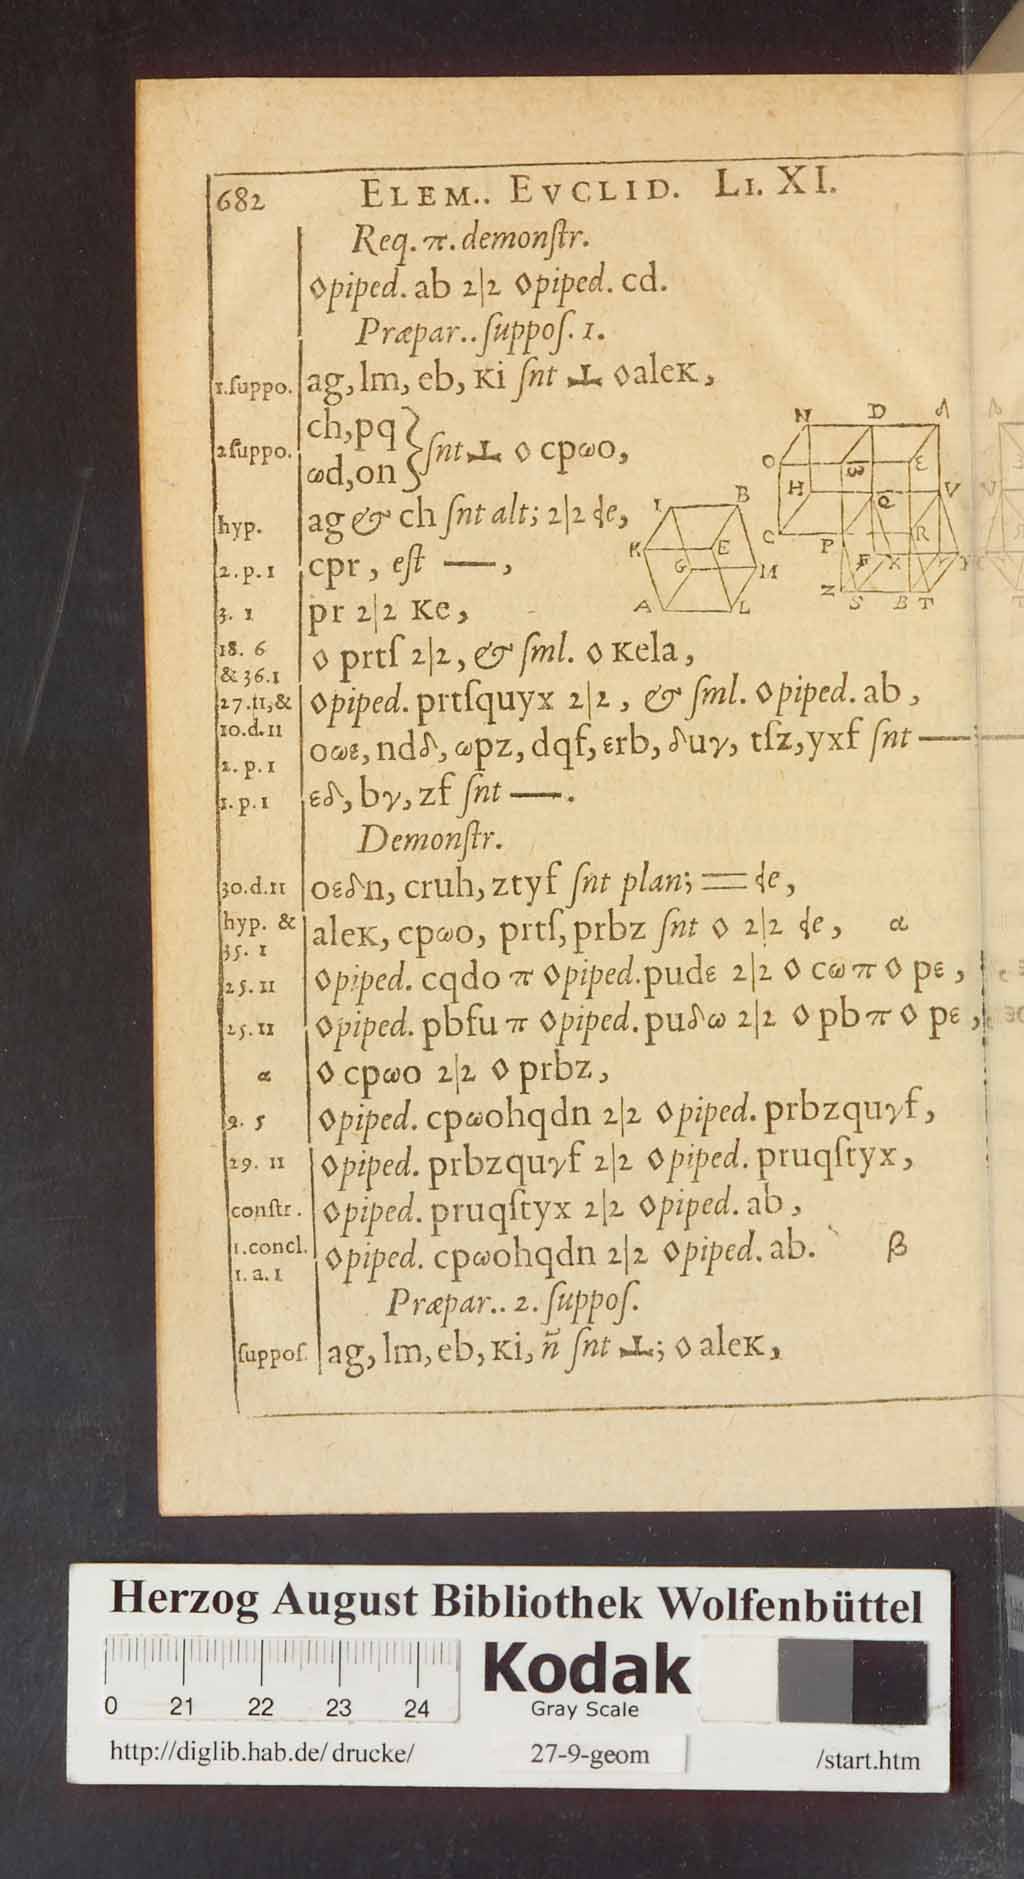 682 ELEM.. EVCLID. LI. XI.
Req. π. demonſtr.
◊piped. ab 2|2 ◊piped. cd.
Præpar.. ſuppoſ. 1.
1.ſuppo. ag, lm, eb, κi ſnt ⊥ ◊aleκ,
2ſuppo. ch, pq } ſnt ⊥ ◊ cpωo,
ωd, on
hyp. ag & ch ſnt alt; 2|2 ɖe,
2. p. 1 cpr, eſt —,
3. 1 pr 2|2 κe,
18. 6 & 36.1 ◊ prtſ 2|2, & ſml. ◊ κela,
27.11,& 10.d.11 ◊piped. prtſquyx 2|2, & ſml. ◊piped. ab,
2. p. 1 oωε, ndδ, ωpz, dqf, εrb, δuγ, tſz, yxf ſnt —
1. p. 1 εδ, bγ, zf ſnt —.
Demonſtr.
30.d.11 oεδn, cruh, ztyf ſnt plan; = ɖe,
hyp. & 35. 1 aleκ, cpωo, prtſ, prbz ſnt ◊ 2|2 ɖe, α
25. 11 ◊piped. cqdo π ◊piped. pudε 2|2 ◊ cω π ◊ pε,
25. 11 ◊piped. pbfu π ◊piped. puδω 2|2 ◊ pb π ◊ pε,
α ◊ cpωo 2|2 ◊ prbz,
9. 5 ◊piped. cpωohqdn 2|2 ◊piped. prbzquγf,
29. 11 ◊piped. prbzquγf 2|2 ◊piped. pruqſtyx,
conſtr. ◊piped. pruqſtyx 2|2 ◊piped. ab,
1.concl. 1. a. 1 ◊piped. cpωohqdn 2|2 ◊piped. ab. β
Præpar.. 2. ſuppoſ.
ſuppoſ. ag, lm, eb, κi, n̄ ſnt ⊥; ◊ aleκ,
N D Λ
O ω E
I B H Q V
K G E M C P R
F X Y
A L Z S B T
Herzog August Bibliothek Wolfenbüttel
Kodak
Gray Scale
0 21 22 23 24
http://diglib.hab.de/drucke/ 27-9-geom /start.htm